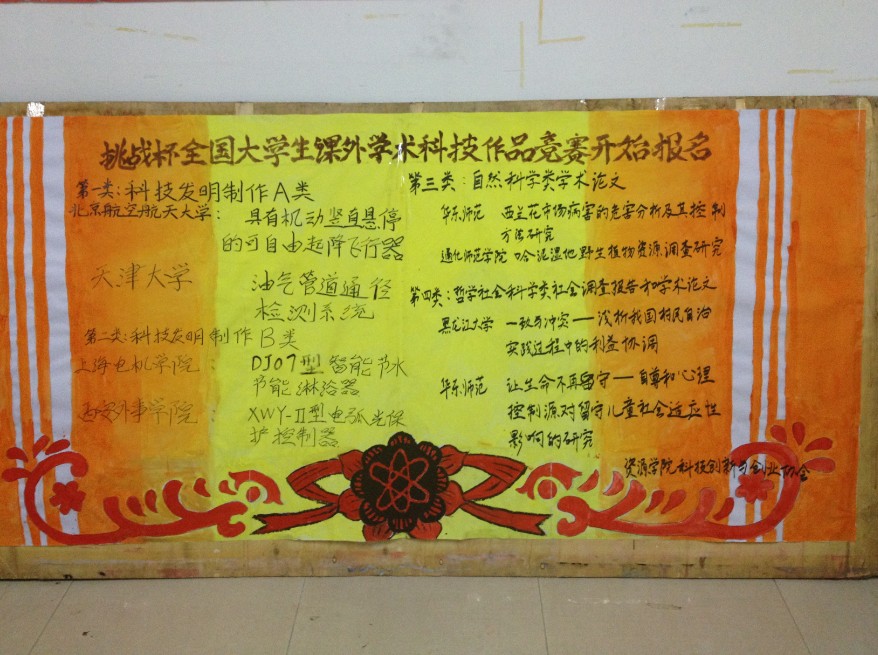 挑战杯全国大学生课外学术科技作品竞赛开始报名
第一类:科技发明制作A类
北京航空航天大学:具有机动竖直悬停
的可自由起降飞行器
天津大学 油气管道通径
检测系统
第二类:科技发明制作B类
上海电机学院:DJ07型智能节水
节能淋浴器
西安外事学院 XWY-II型电弧光保
护控制器
第三类:自然科学类学术论文
华东师范 西兰花市场病害的危害分析及其控制
方法研究
通化师范学院 哈泥湿地野生植物资源调查研究
第四类:哲学社会科学类社会调查报告和学术论文
黑龙江大学 一致与冲突——浅析我国村民自治
实践过程中的利益协调
华东师范 让生命不再留守——自尊和心理
控制源对留守儿童社会适应性
影响的研究
资源学院科技创新与创业协会